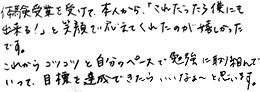 体験授業を受けて、本人から、「これだったら僕にも
出来る！」と笑顔で応えてくれたのが嬉しかった
です。
これからコツコツと自分のペースで勉強に取り組んで
いって、目標を達成できたらいいなぁ〜と思います。